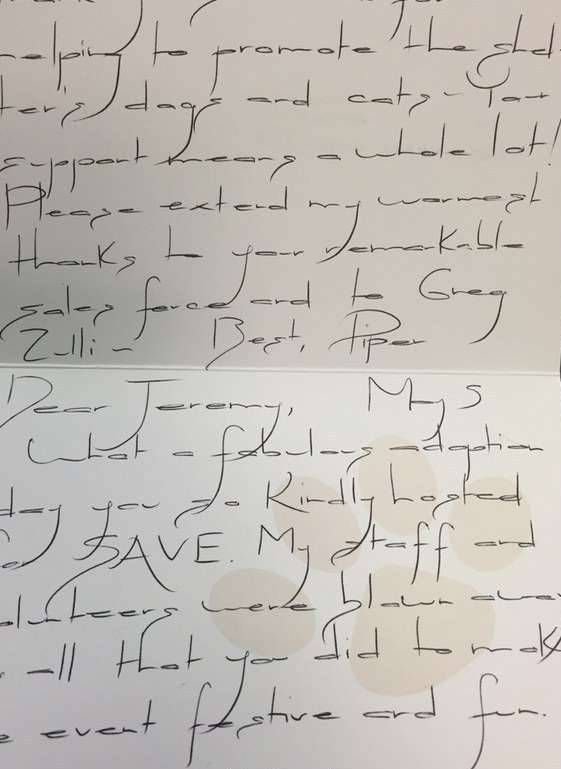 helping to promote the shel-
ter's dogs and cats - Your
support means a whole lot!
Please extend my warmest
thanks to your remarkable
sales force and to Greg
Best, Piper
Dear Jeremy, May 5
What a fabulous adoption
day you so kindly hosted
SAVE. My staff and
volunteers were blown away
all that you did to make
event festive and fun.